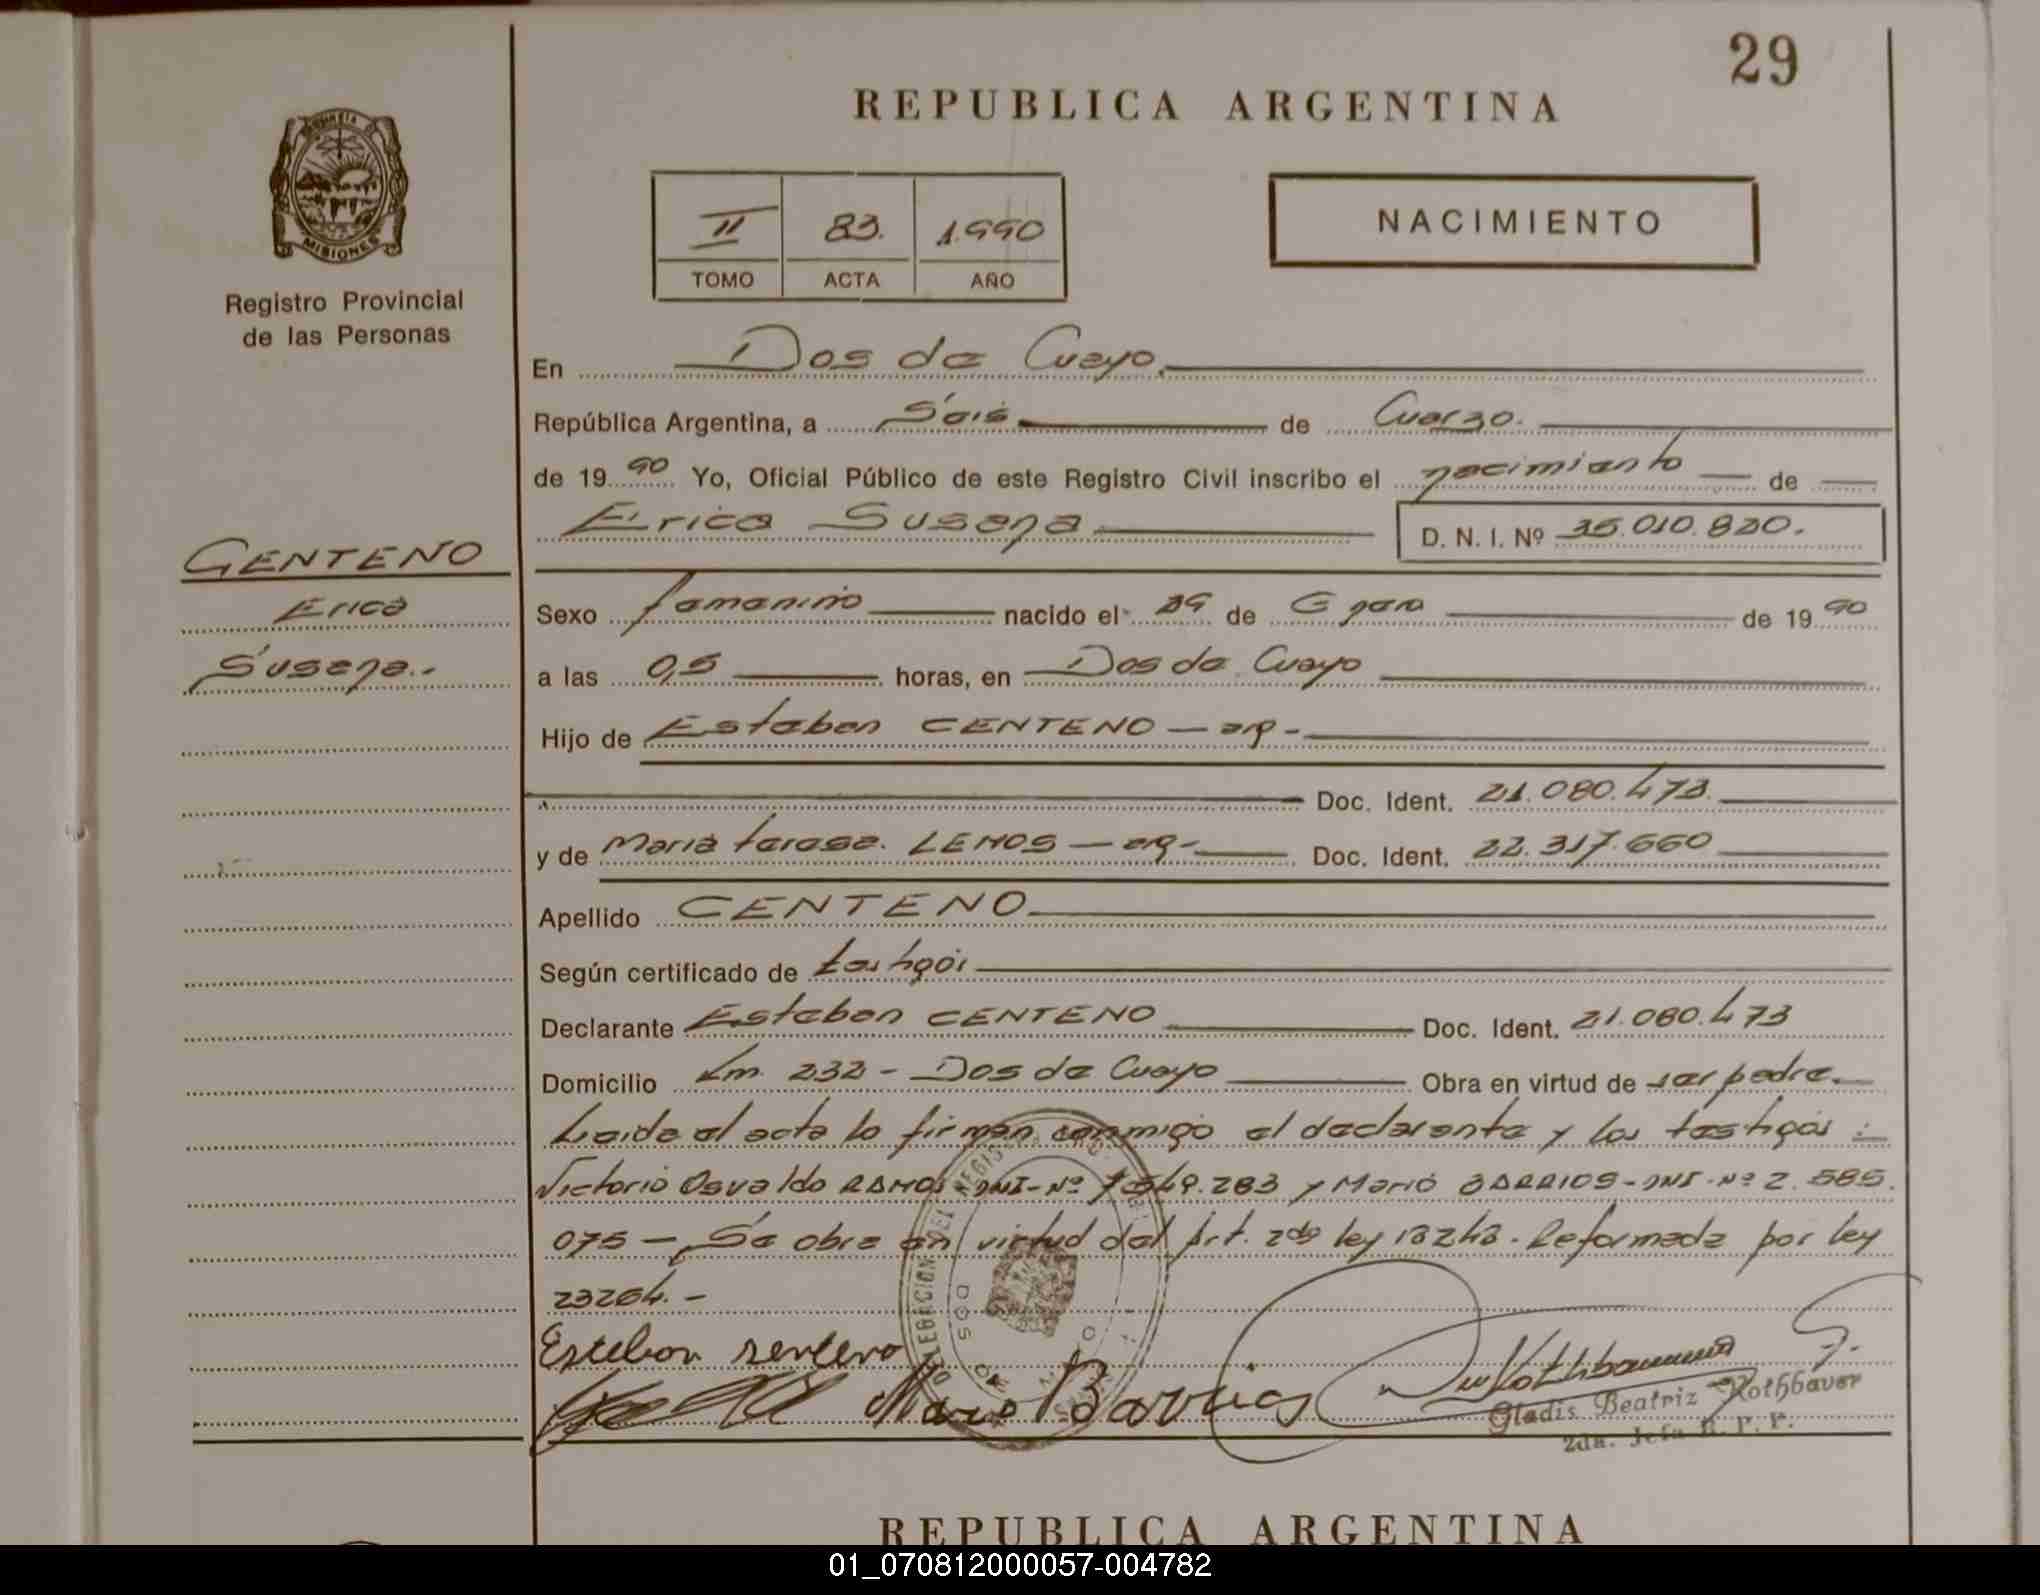 29
REPUBLICA ARGENTINA
PROVINCIA DE
MISIONES
Registro Provincial
de las Personas
II 83. 1.990
TOMO ACTA AÑO
NACIMIENTO
En Dos de Mayo.
República Argentina, a Seis de Marzo.
de 1990 Yo, Oficial Público de este Registro Civil inscribo el nacimiento de
Erica Susana D. N. I. Nº 35.010.820.
CENTENO
Erica
Susana.
Sexo femenino nacido el 29 de Enero de 1990
a las 0,5 horas, en Dos de Mayo
Hijo de Esteban CENTENO - arg -
Doc. Ident. 21.080.473.
y de Maria teresa. LEMOS - arg - Doc. Ident. 22.317.660
Apellido CENTENO
Según certificado de testigos
Declarante Esteban CENTENO Doc. Ident. 21.080.473
Domicilio Km. 232 - Dos de Mayo Obra en virtud de ser padre.
Leida el acta lo firman conmigo el declarante y los testigos :
Victorio Osvaldo RAMOS - DNI - Nº 7.549.283 y Mario BARRIOS - DNI - Nº 2.585.
075 - Se obra en virtud del Art. 2do ley 18248. Reformada por ley
23264. -
Esteban senteno
Mario Barrios
Gladis Beatriz Rothbauer
2da. Jefa R. P. P.
REPUBLICA ARGENTINA
01_070812000057-004782